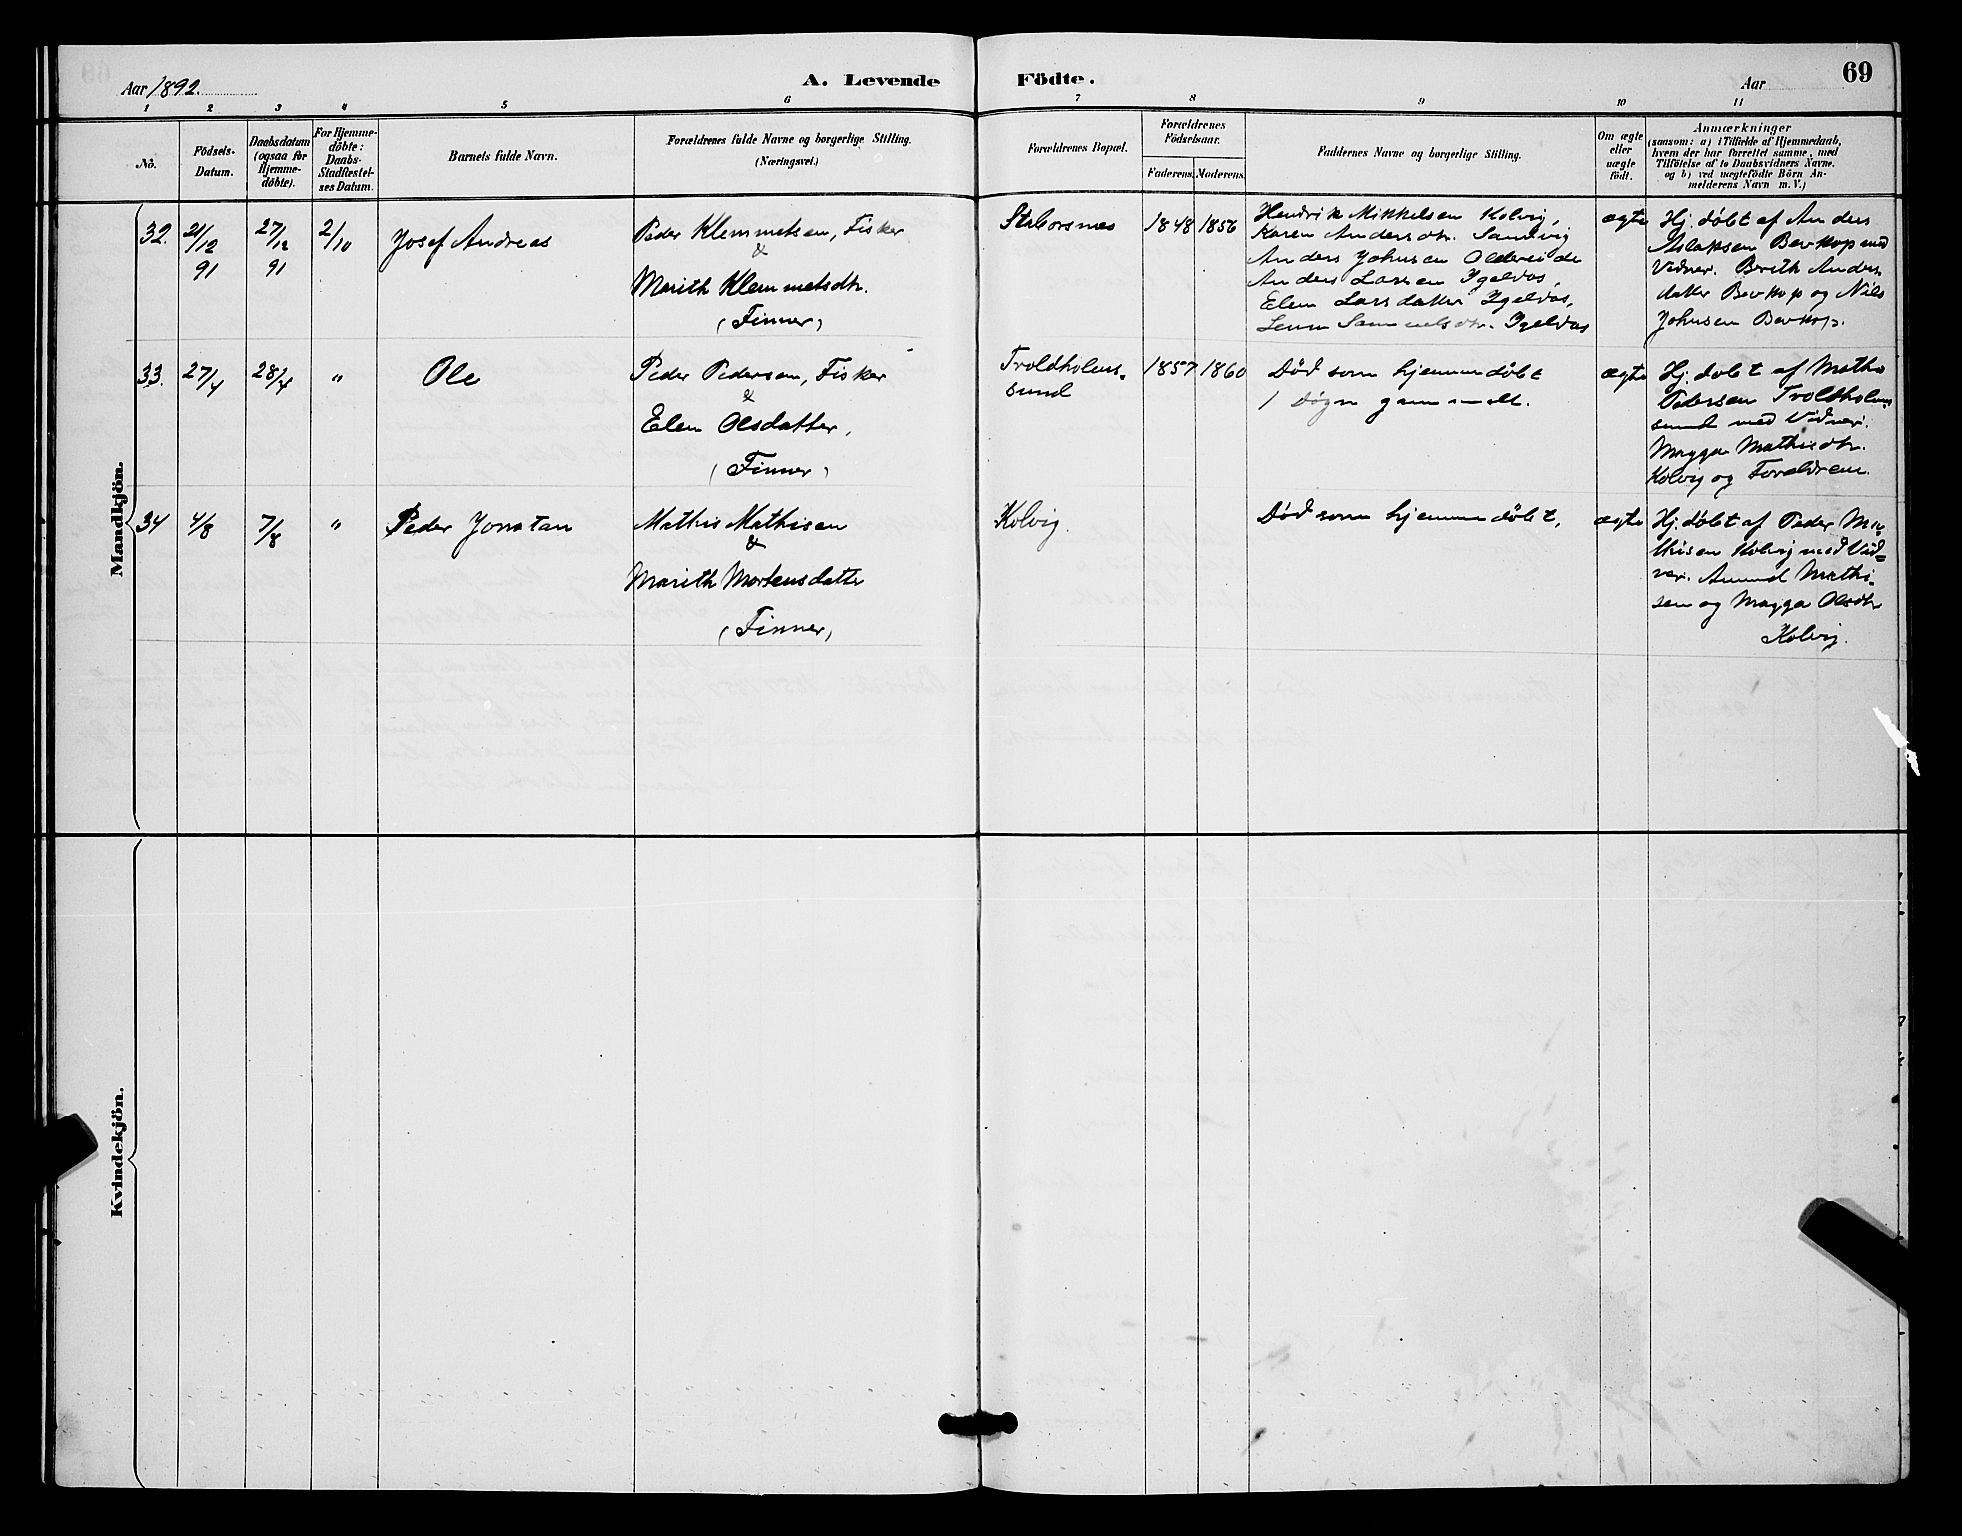 Aar 1892.
A. Levende Födte.
Aar
69
1 2 3 4 5 6 7 8 9 10 11
No.
Födsels-
Datum.
Daabsdatum
(ogsaa for
Hjemme-
döbte).
For Hjemme-
döbte:
Daabs-
Stadfæstel-
ses Datum.
Barnets fulde Navn.
Forældrenes fulde Navne og borgerlige Stilling.
(Næringsvei.)
Forældrenes Bopæl.
Forældrenes
Födselsaar.
Faderens. Moderens.
Faddernes Navne og borgerlige Stilling.
Om ægte
eller
uægte
födt.
Anmærkninger
(saasom: a) i Tilfælde af Hjemmedaab,
hvem der har forrettet samme, med
Tilföielse af to Daabsvidners Navne.
og b) ved uægtefödte Börn An-
melderens Navn m. V.)
Mandkjön.
32. 21/12 91
27/12 91
2/10
Josef Andreas
Peder Klemmetsen, Fisker
&
Marith Klemmetsdtr.
(Finner)
Staborsnes
1848 1856
Hendrik Mikkelsen Kolvig,
Karen Andersdtr. Sandvig
Anders Johnsen Oldereide
Anders Larsen Igeldas,
Elen Larsdatter Igeldas,
Samuelsdtr. Igeldas
ægte
Hj. döbt af Anders
Aslaksen Bevkop med
Vidner. Berith Anders
datter Bevkop og Nils
Johnsen Bevkop.
33. 27/4
28/4
"
Ole
Peder Pedersen, Fisker
&
Elen Olsdatter,
(Finner)
Troldholms-
sund
1857 1860
Död som hjemmedöbt
1 Dögn gammelt.
ægte
Hj. döbt af Mathis
Pedersen Troldholms
sund med Vidner.
Magga Mathisdtr.
Kolvig og Forældrene.
34 4/8
7/8
"
Peder Jonatan
Mathis Mathisen
&
Marith Mortensdatter
(Finner)
Kolvig.
Död som hjemmedöbt,
ægte
Hj. döbt af Peder Ma-
thisen Kolvig med Vid-
ner. Amund Mathi-
sen og Magga Olsdtr
Kolvig.
Kvindekjön.